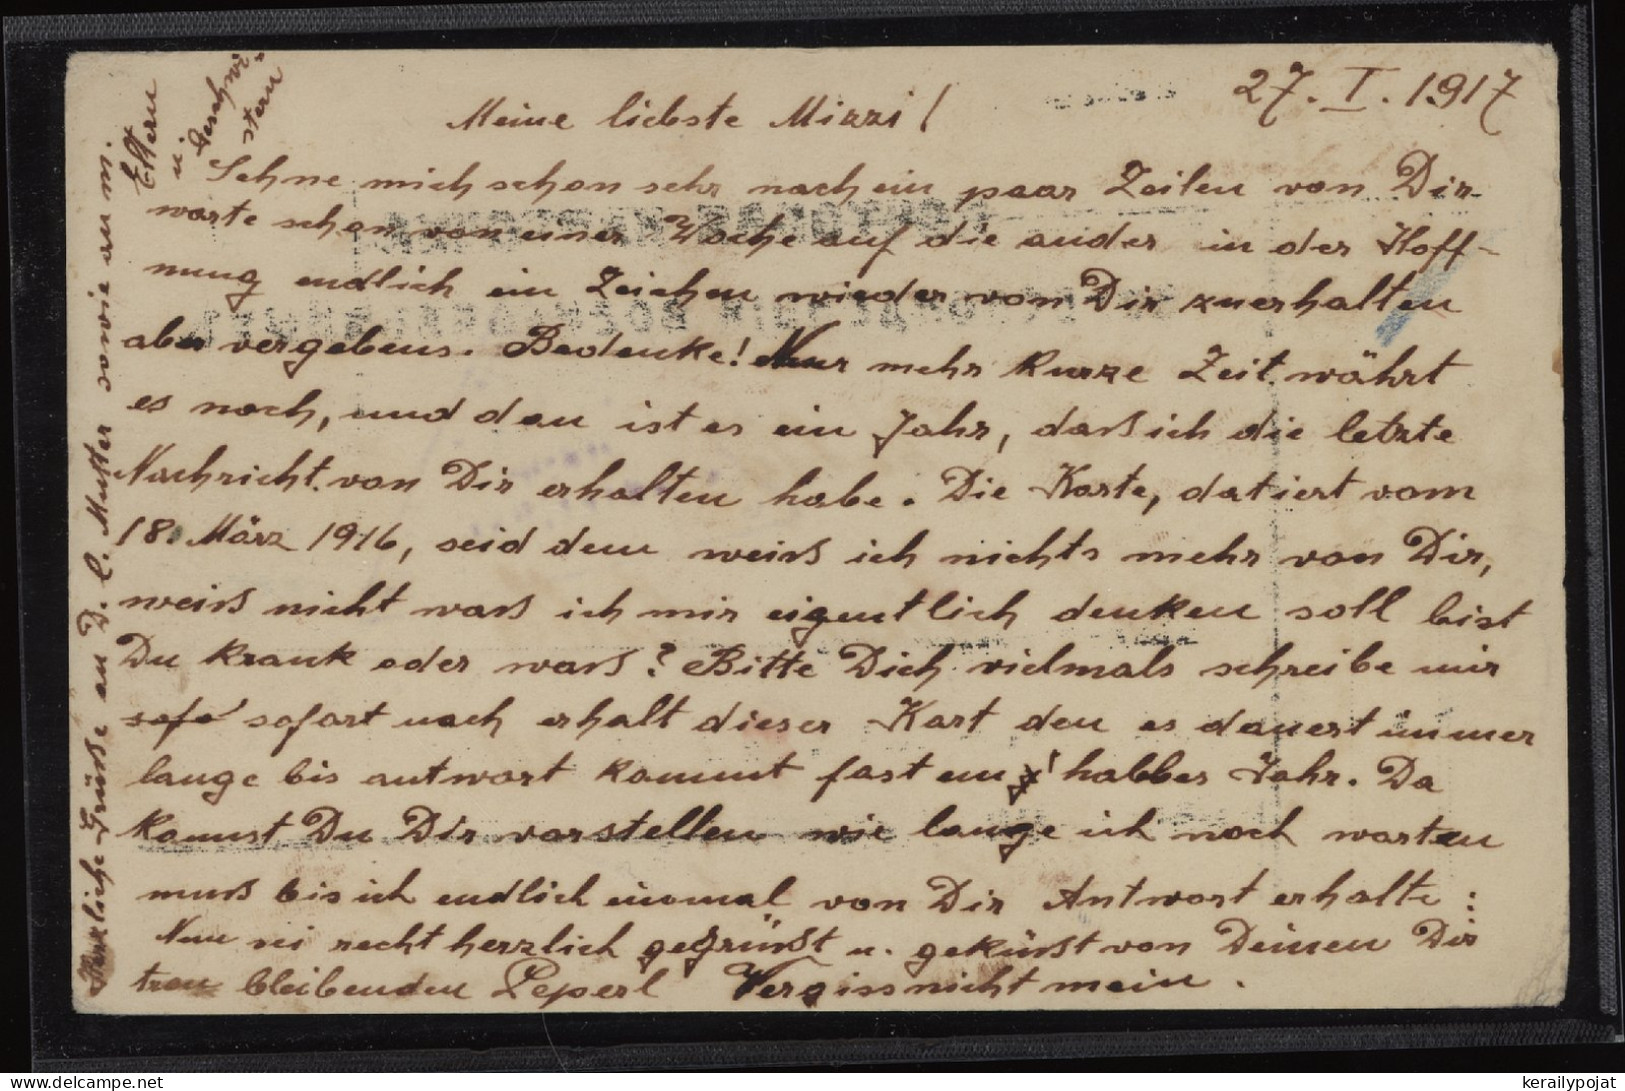 27. I. 1917
Meine liebste Mizzi!
Sehne mich schon sehr nach ein paar Zeilen von Dir.
warte schon von einer Woche auf die ander in der Hoff-
nung endlich ein Zeichen wieder von Dir zuerhalten
aber vergebens. Bedenke! Nur mehr kurze Zeit währt
es noch, und dan ist es ein Jahr, daß ich die letzte
Nachricht von Dir erhalten habe. Die Karte, datiert vom
18. März 1916, seid dem weiß ich nichts mehr von Dir,
weiß nicht waß ich mir eigentlich denken soll bist
Du krank oder waß? Bitte Dich vielmals schreibe mir
sofo sofort nach erhalt dieser Kart den es dauert immer
lange bis antwort kommt fast ein halbes Jahr. Da
kannst Du Dir vorstellen wie lange ich noch warten
muß bis ich endlich einmal von Dir Antwort erhalte:
Nun sei recht herzlich gegrüßt u. geküßt von Deinen Dir
treu bleibenden Peperl Vergissnicht mein.
Herzliche Grüße an D. l. Mutter sowie an m.
Eltern
u.
Geschwi-
stern
kerailypojat
© www.delcampe.net